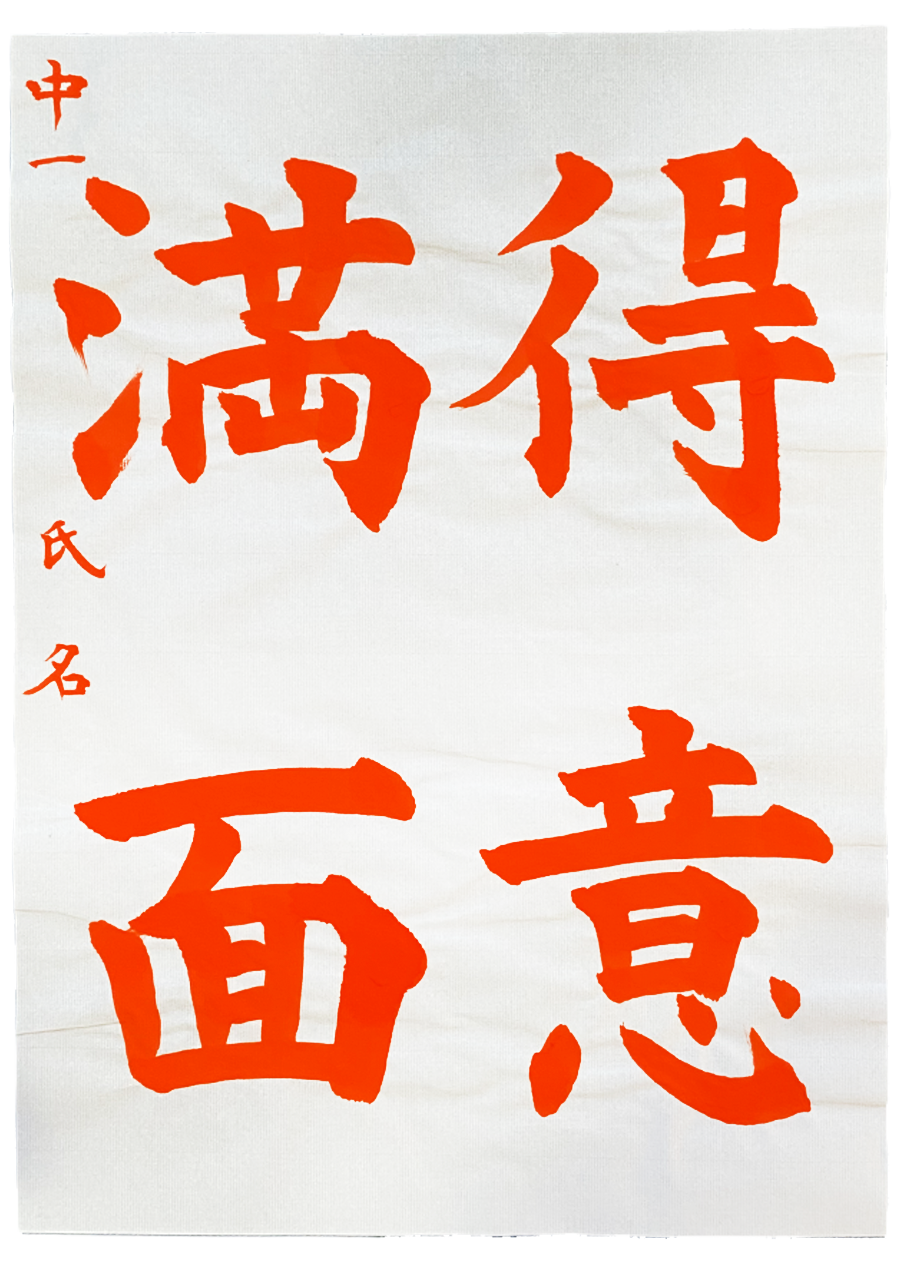 得意
満面
中一 氏名